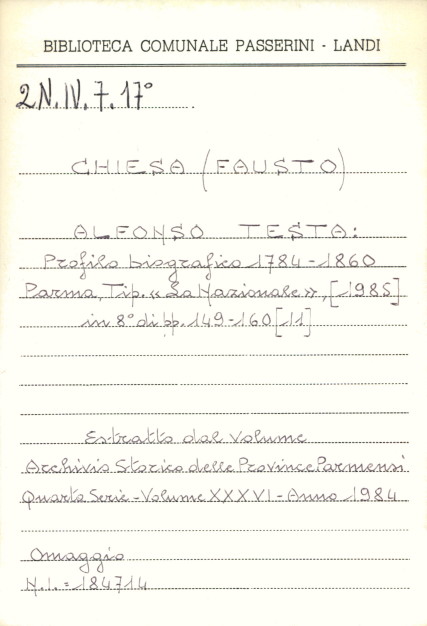 BIBLIOTECA COMUNALE PASSERINI - LANDI
2N.IV.7.17°
CHIESA (FAUSTO)
ALFONSO TESTA:
Profilo biografico 1784-1860
Parma, Tip. «La Nazionale», [1985]
in 8° di pp. 149-160 [11]
Estratto dal Volume
Archivio Storico delle Province Parmensi
Quarta Serie - Volume XXXVI - Anno 1984
Omaggio
N.I. = 184714